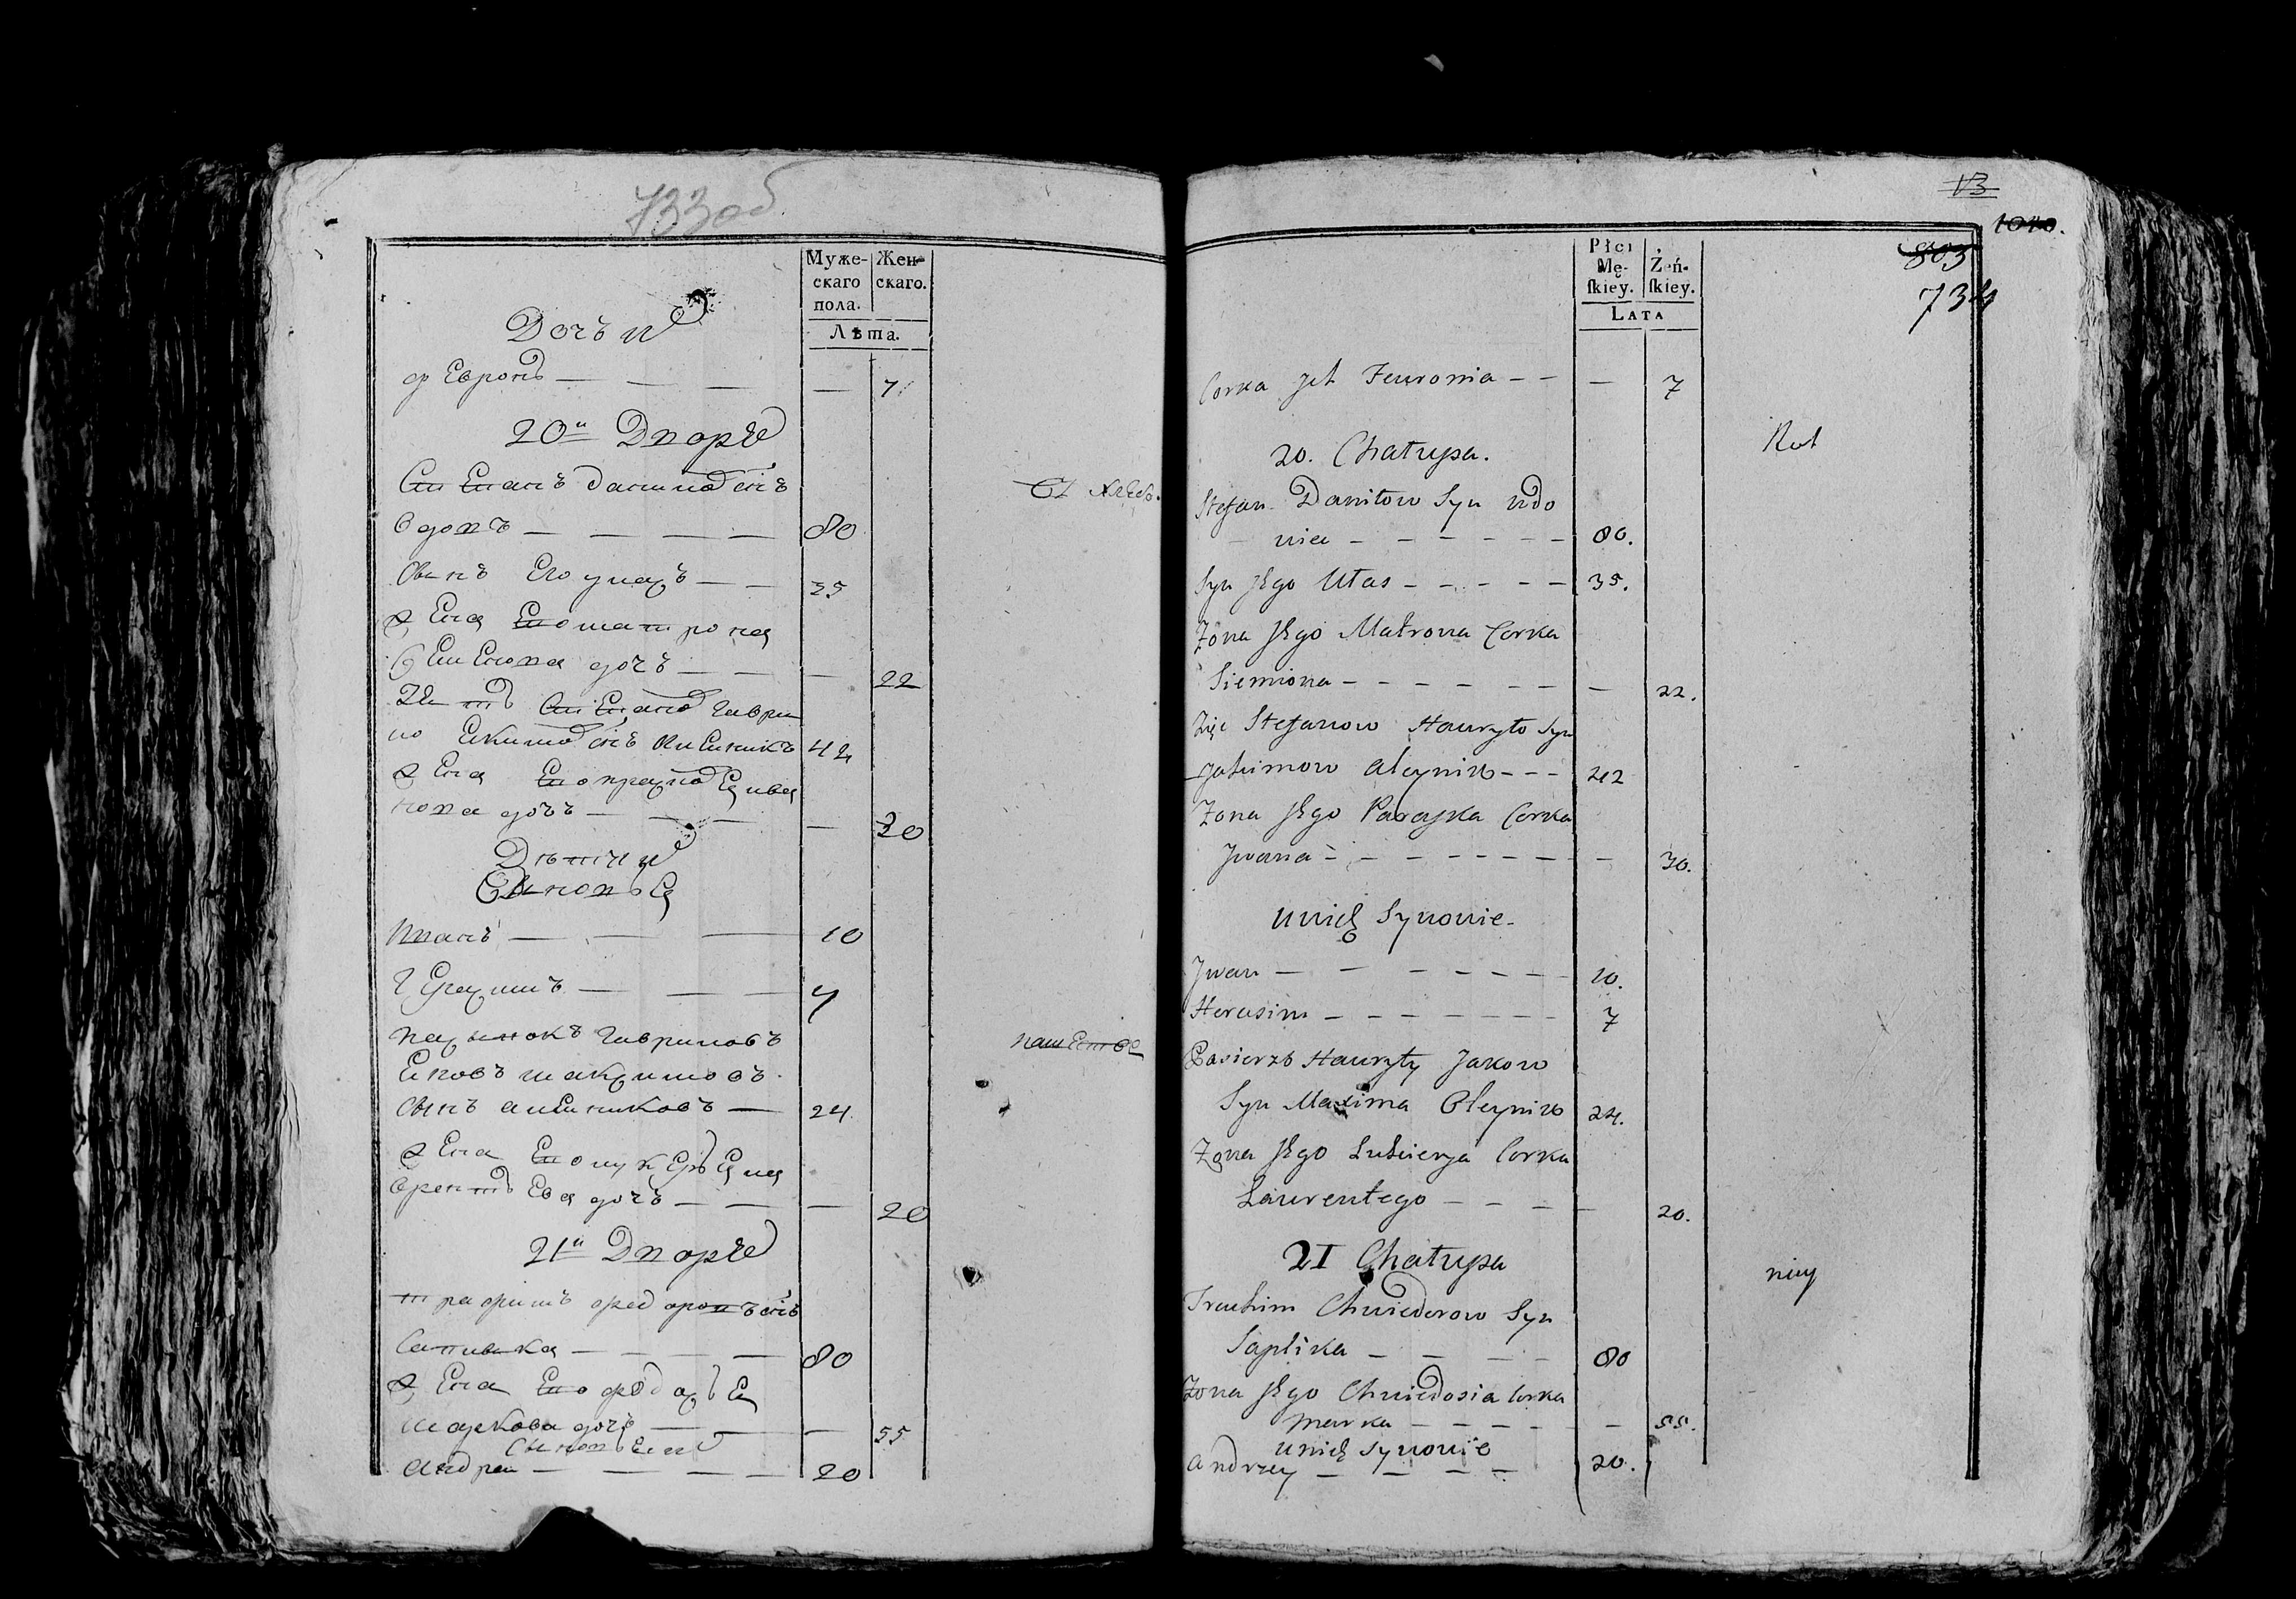 733 об
Муже-
скаго
пола.
Жен-
скаго.
Лѣта.
Дочь
Февронѣ — — — — 7
20й Дворъ
Степанъ данилов снъ
вдовъ — — — — 80
Сынъ Его уласъ — — 35
жена Его матрона
Семенова дочь — — — 22
Зять Степанов Гаврил
Екимов снъ 42
жена Его
нова дочь — — — — 30
Дѣти
Сыновья
иванъ — — — 10
Герасимъ — — — 7
пасынокъ Гавриловъ
Яковъ максимовъ
сынъ алейниковъ — 24
жена Его лукеръя ла
врентьева дочь — — — 20
пашеетсе
21й Дворъ
трафимъ федоровъ снъ
Саплика — — — — 80
жена Его федосья
маркова дочь — — — 55
Сыновья
андреи — — — — 20
13
1010.
803
734
Płci
Mę-
ſkiey.
Żeń-
ſkiey.
LATA
Corka Jch Feuronia – – — 7
20. Chałupa.
Rol
Stefan Daniłow Syn wdo
wiec – – – – – – – 80.
Syn Jego Ułas – – – – – 35.
Zona Jego Matrona Corka
Siemiona – – – – – – – – 22.
Zięć Stefanow Hawryło Syn
Jachimow Aleynik – – – 42
Zona Jego Paraska Corka
Jwana – – – – – – – – – 30.
Unich Synowie
Jwan – – – – – – – 10.
Herasim – – – – – – – 7
Pasierzb Hawryły Jakow
Syn Maxima Oleynik 24.
Zona Jego Łukierya Corka
Laurentego – – – – – 20.
21 Chałupa
niey
Trochim Chwiedorow Syn
Saplika – – – – 80
Zona Jego Chwiedosia Corka
Marka – – – – – – 55.
unich Synowie
Andrzey – – – – – 20.